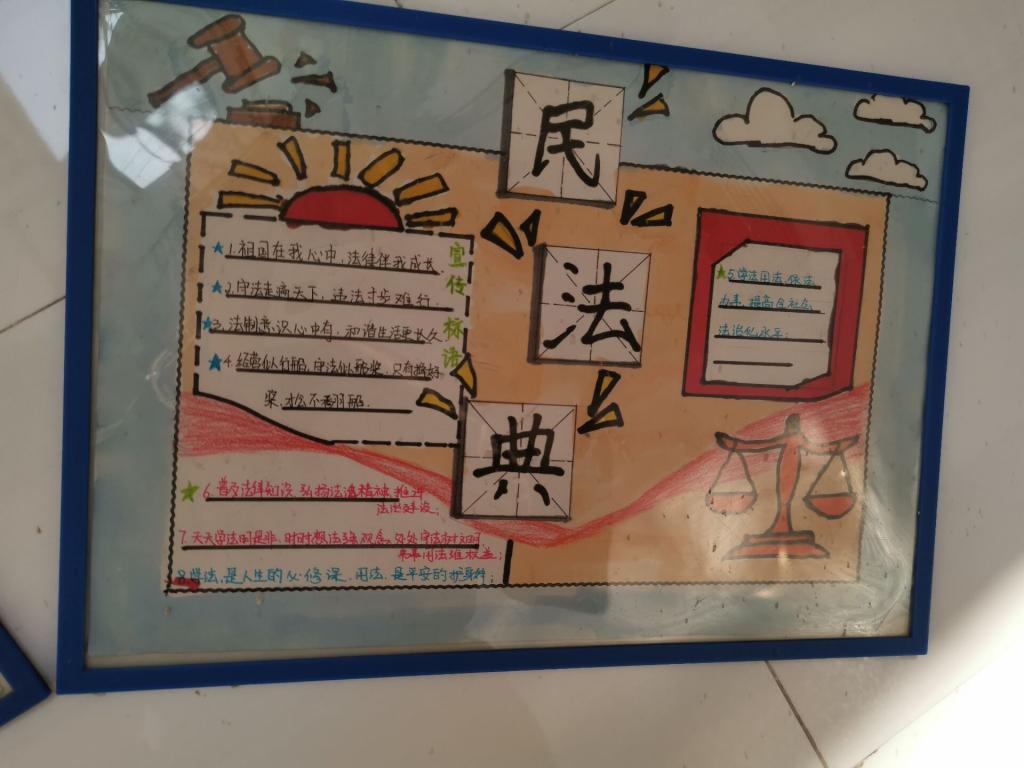 民
法
典
宣传标语
1.祖国在我心中,法律伴我成长.
2.守法走遍天下,违法寸步难行.
3.法制意识心中有,和谐生活更长久
4.经营似行船,守法似船桨.只有摇好
桨.才么不翻船.
5.学法用法,依法
办事,提高全社会
法治化水平;
6.普及法律知识,弘扬法治精神,推进
法治建设;
7.天天学法明是非,时时想法强观念,处处守法树文明
来事用法维权益;
8.学法,是人生的必修课,用法,是平安的护身符;